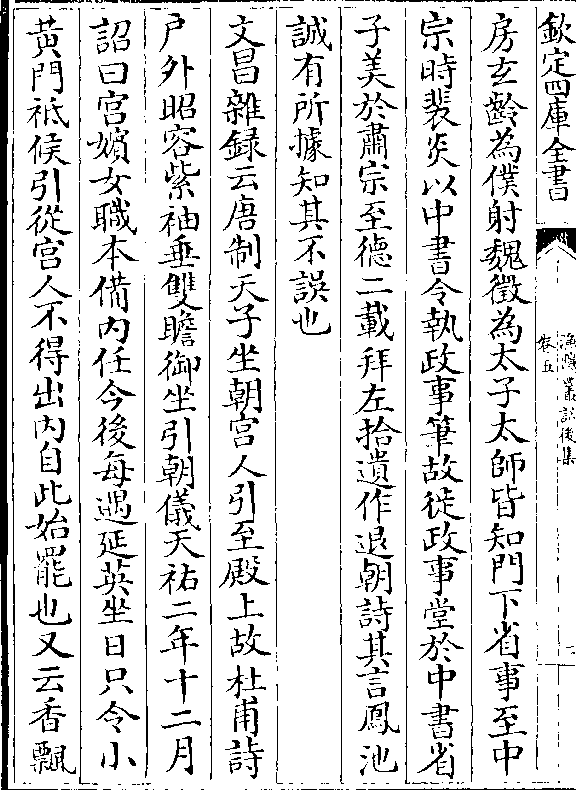 欽定四庫全書
漁隱叢話後集
卷五
房玄齡為僕射魏徵為太子太師皆知門下省事至中
宗時裴炎以中書令執政事筆故徙政事堂於中書省
子美於肅宗至德二載拜左拾遺作退朝詩其言鳳池
誠有所據知其不誤也
文昌雜録云唐制天子坐朝宮人引至殿上故杜甫詩
户外昭容紫袖垂雙瞻御坐引朝儀天祐二年十二月
詔曰宮嬪女職本備内任今後每遇延英坐日只令小
黄門祗候引從宮人不得出内自此始罷也又云香飄